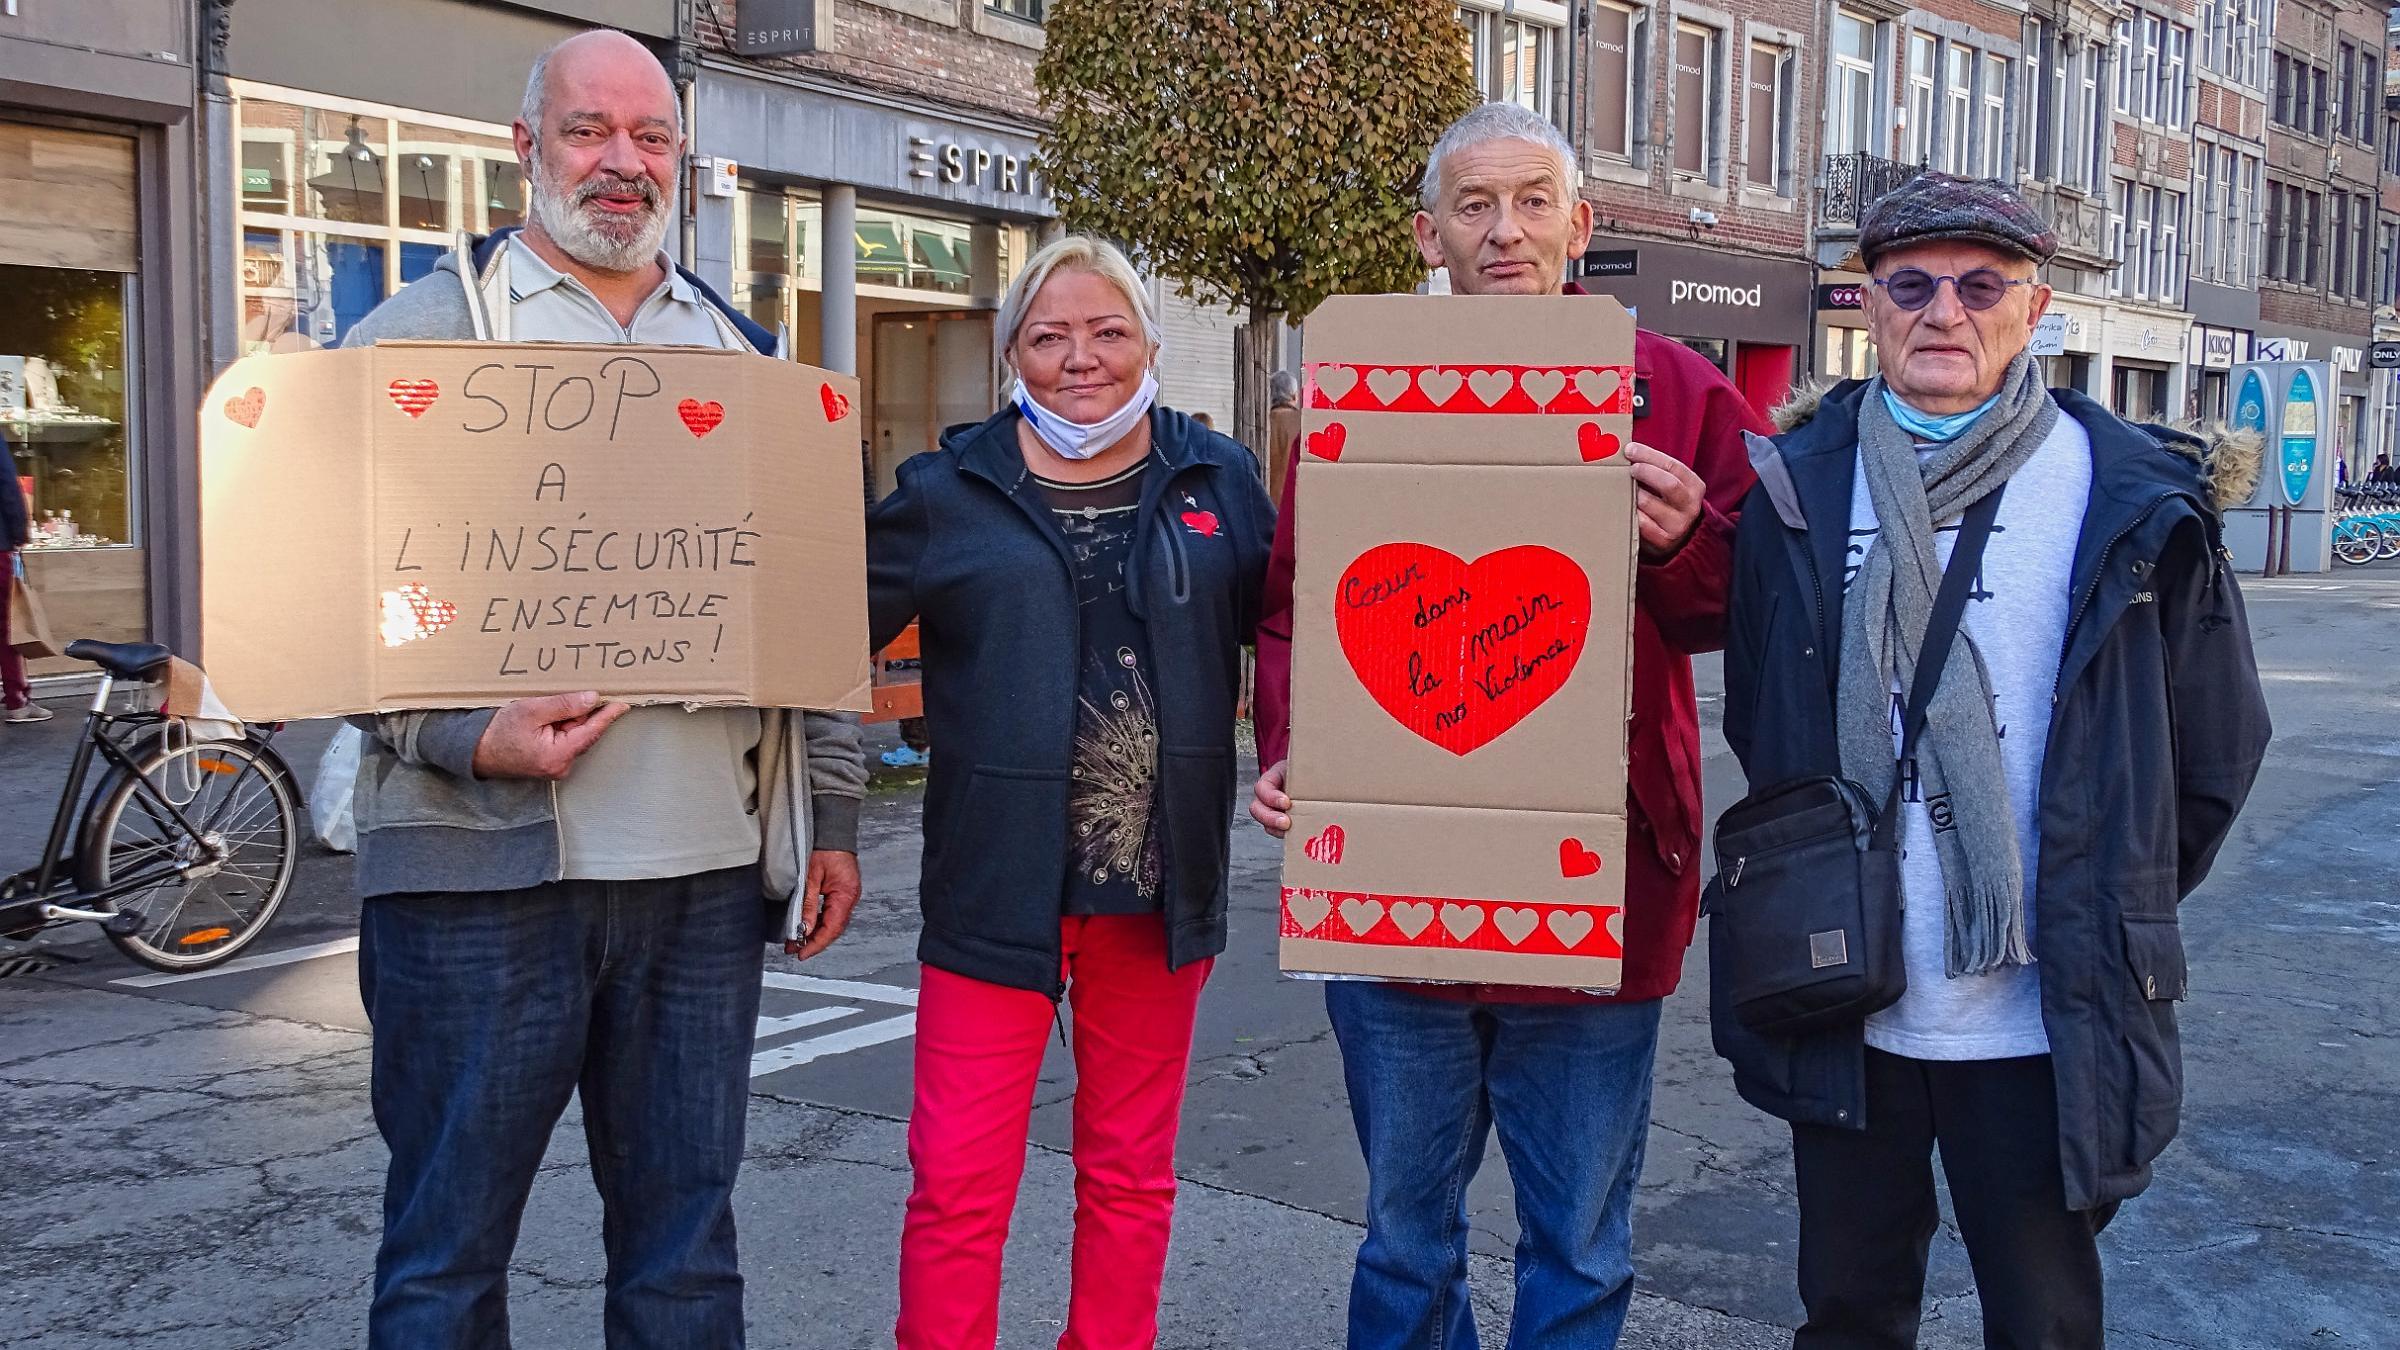 ESPRIT
ESPRIT
romod
romod
omod
promod
promod
STOP
A
L'INSÉCURITÉ
ENSEMBLE
LUTTONS !
Cœur
dans
la main
no violence.
KIKO
ONLY
ONLY